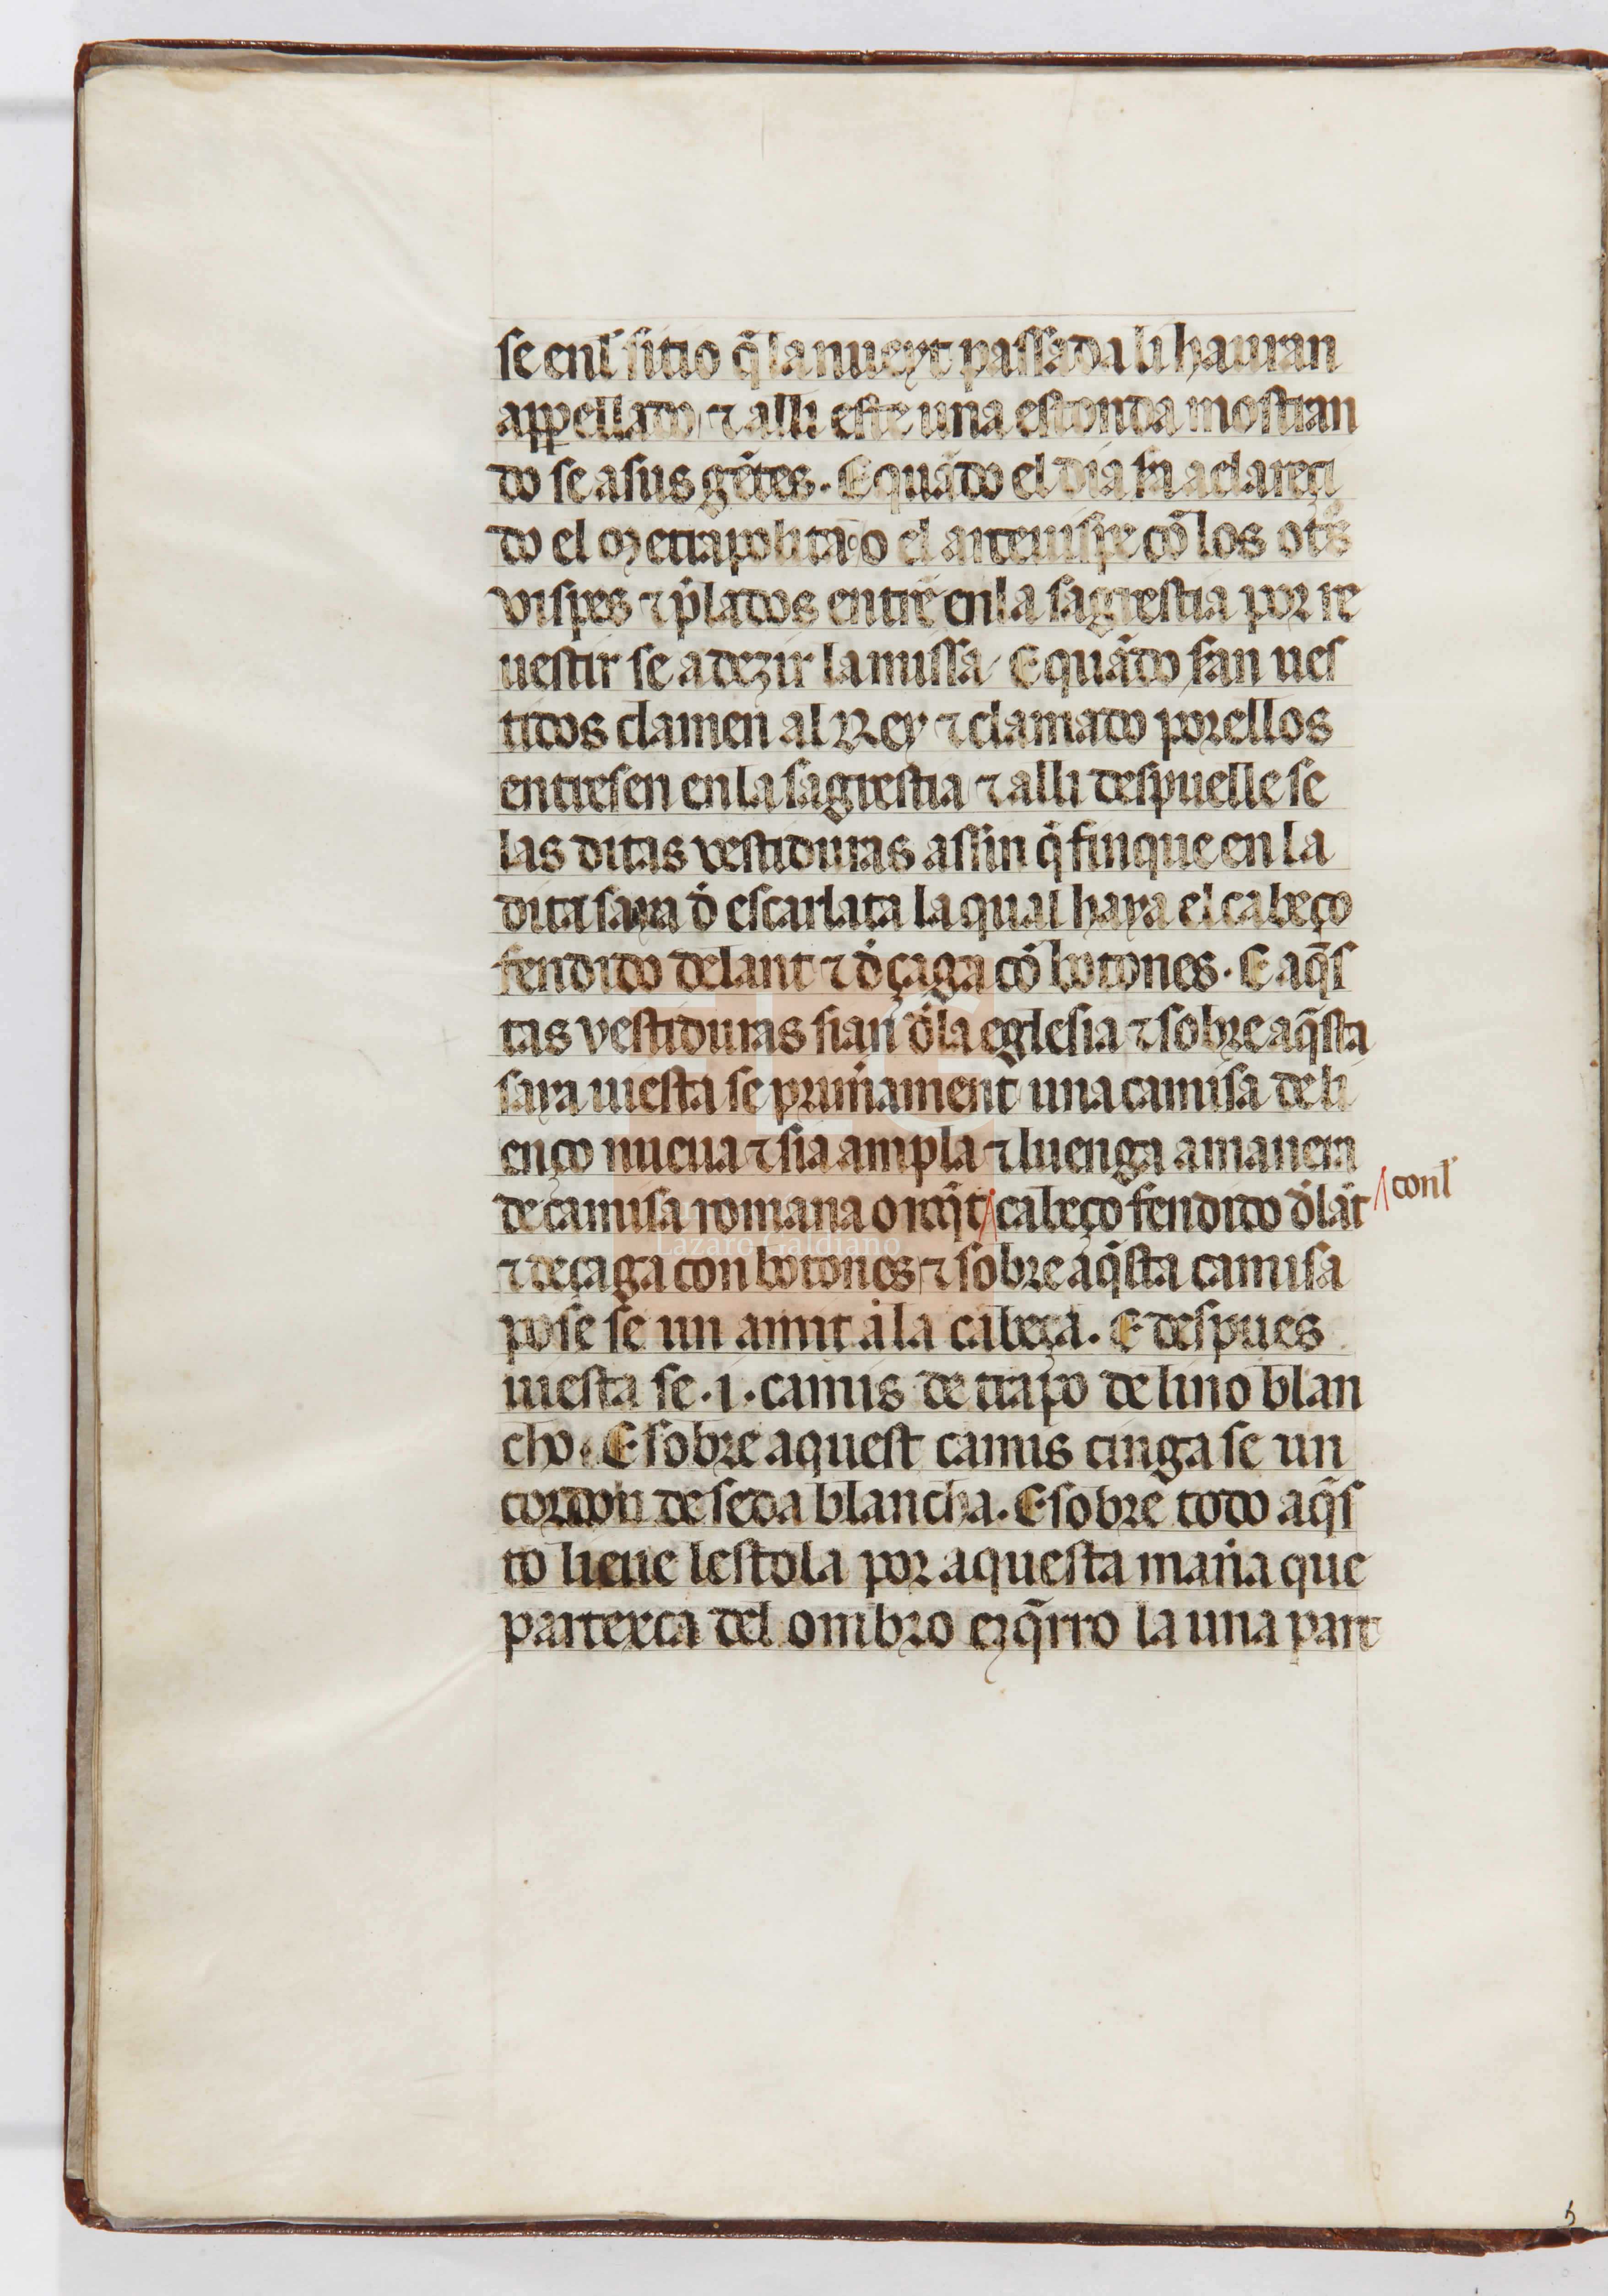 se enl sitio q̃ la nueyt passada li hauran
appellado ⁊ alli este una estonda mostran
do se a sus gẽtes. E quãdo el dia sia clareci
do el metrapolitão o el arceuispe cõ los otrs̃
vispes ⁊ p̃lados entrẽ en la sagrestia por re
uestir se a dezir la missa. E quãdo sian ues
tidos clamen al Rey ⁊ clamado por ellos
entresen en la sagrestia ⁊ alli despuelle se
las ditas vestiduras assin q̃ finque en la
dita saya d̓ escarlata la qual haya el cabeço
fendido delant ⁊ d̓ çaga cõ botones. E aq̃s
tas vestiduras sian d̓la eglesia ⁊ sobre aq̃sta
saya uiesta se prim̃ament una camisa de li
enço nueua ⁊ sia ampla ⁊ luenga a manera
de camisa romana o roq̃t cabeço fendido d̓lãt
conl
⁊ de çaga con botones ⁊ sobre aq̃sta camisa
pose se un amit a la cabeça. E despues
uiesta se .i. camis de trapo de lino blan
cho. E sobre aquest camis cinga se un
cordon de seda blancha. E sobre todo aq̃s
to lieue lestola por aquesta man̓a que
partexca del ombro ezq̃rro la una part
LG
Lázaro Galdiano
5